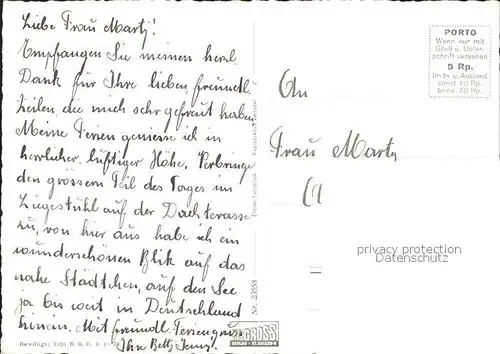 Liebe Frau Marty!
Empfangen Sie meinen herzl.
Dank für Ihre lieben, freundl.
Zeilen, die mich sehr gefreut haben.
Meine Ferien geniesse ich in
herrlicher, luftiger Höhe. Verbringe
den grössern Teil des Tages im
Liegestuhl auf der Dachterasse
zu, von hier aus habe ich ein
wunderschönen Blik auf das
nahe Städtchen, auf den See
ja bis weit in Deutschland
hinein. Mit freundl. Feriengruss
Ihre Betty
Bewilligt: 1520 B.R.B.
Nr. 23558
GROSS
PORTO
Wenn nur mit
Gruß u. Unter-
schrift versehen
5 Rp.
Im In- u. Ausland
sonst 10 Rp.
bezw. 20 Rp.
An
Frau Marty
privacy protection
Datenschutz